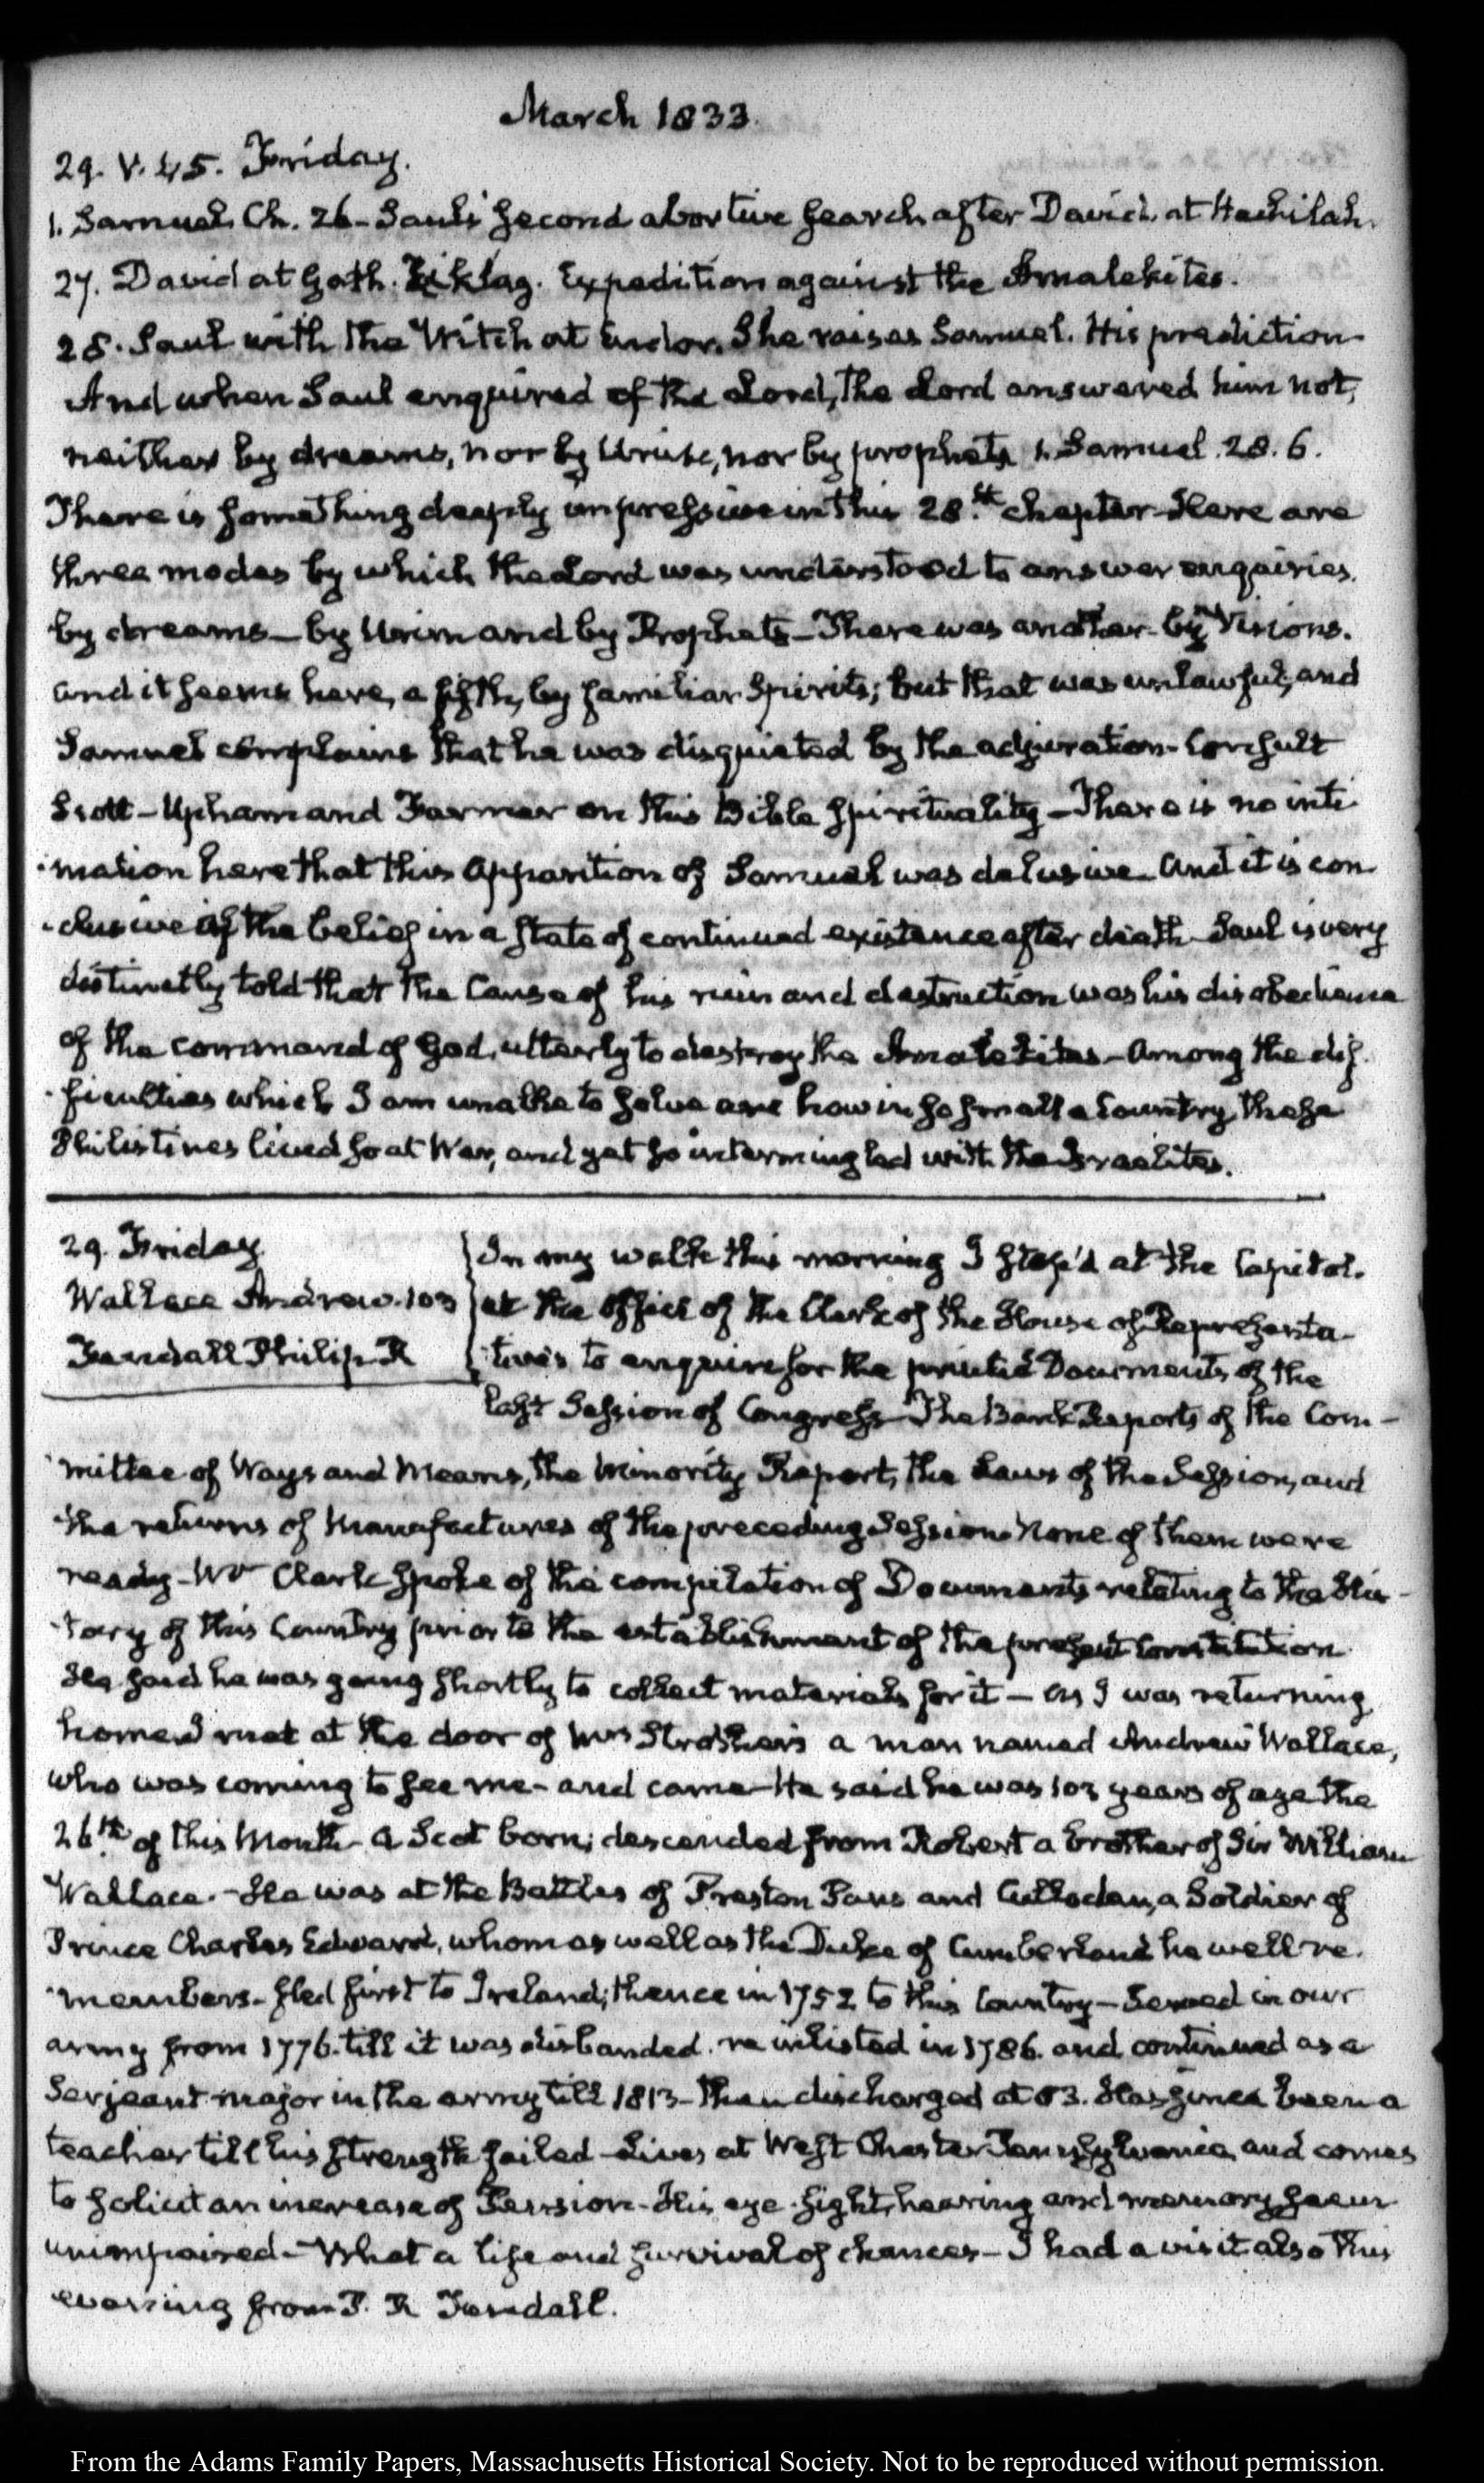 March 1833.
29. V. 45. Friday.
1. Samuel Ch. 26 - Saul's second abortive search after David at Hachilah.
27. David at Gath. Ziklag. Expedition against the Amalekites.
28. Saul with the Witch at Endor. She raises Samuel. His prediction
And when Saul enquired of the Lord, the Lord answered him not,
neither by dreams, nor by Urim, nor by prophets 1. Samuel. 28. 6.
There is something deeply impressive in this 28.th chapter - Here are
three modes by which the Lord was understood to answer enquiries.
by dreams - by Urim and by Prophets - There was another - by Visions.
and it seems here, a fifth, by familiar Spirits; but that was unlawful, and
Samuel complains that he was disquieted by the adjuration - Consult
Scott - Upham and Farmer on this Bible spirituality - There is no inti-
mation here that this apparition of Samuel was delusive - And it is con-
clusive of the belief in a state of continued existence after death - Saul is very
distinctly told that the cause of his ruin and destruction was his disobedience
of the command of God, utterly to destroy the Amalekites - Among the dif-
ficulties which I am unable to solve are how in so small a Country, these
Philistines lived so at War, and yet so intermingled with the Israelites.
29. Friday
Wallace Andrew. 103
Fendall Philip R
In my walk this morning I stop'd at the Capitol.
at the Office of the Clerk of the House of Representa-
tives to enquire for the printed Documents of the
last Session of Congress - The Bank Reports of the Com-
mittee of Ways and Means, the Minority Report, the Laws of the Session, and
the returns of Manufactures of the preceding Session. None of them were
ready - Mr Clark spoke of the compilation of Documents relating to the His-
tory of this Country prior to the establishment of the present Constitution
He said he was going shortly to collect materials for it - As I was returning
home I met at the door of Mrs Strother's a man named Andrew Wallace,
who was coming to see me - and came - He said he was 103 years of age the
26th of this Month - A Scot born; descended from Robert a brother of Sir William
Wallace. - He was at the Battles of Preston Pans and Culloden, a Soldier of
Prince Charles Edward, whom as well as the Duke of Cumberland he well re-
members - fled first to Ireland; thence in 1752 to this Country - Served in our
army from 1776. till it was disbanded. re inlisted in 1786. and continued as a
Serjeant major in the army till 1813 - then discharged at 83. Has since been a
teacher till his strength failed - Lives at West Chester Pennsylvania, and comes
to solicit an increase of Pension - His eye-sight, hearing and memory seem
unimpaired - What a life and survival of chances - I had a visit also this
evening from P. R Fendall.
From the Adams Family Papers, Massachusetts Historical Society. Not to be reproduced without permission.